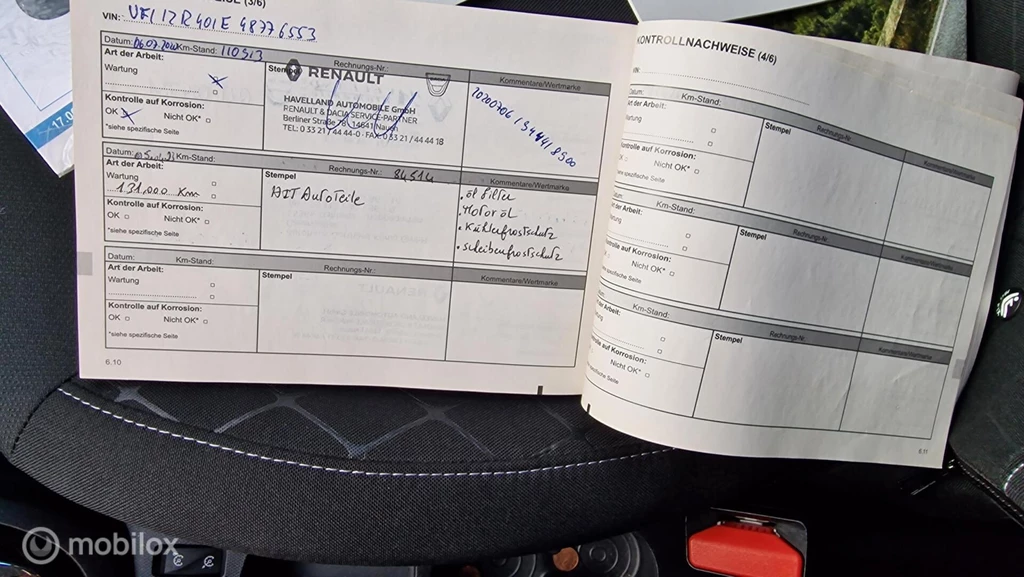 (3/6)
VIN: VF112R401E48776553
Datum: Km-Stand: 110513 Rechnungs-Nr.:
Art der Arbeit: Stempel Kommentare/Wertmarke
Wartung x
RENAULT
HAVELLAND AUTOMOBILE GmbH
RENAULT & DACIA SERVICE-PARTNER
Berliner Straße 14641 Nauen
TEL: 0 33 21 / 44 44-0 - FAX: 0 33 21 / 44 44 18
Kontrolle auf Korrosion:
OK x Nicht OK*
*siehe spezifische Seite
Datum: Km-Stand: Rechnungs-Nr.: 84514
Art der Arbeit: Stempel Kommentare/Wertmarke
Wartung
131.000 Km
Kontrolle auf Korrosion:
OK Nicht OK*
*siehe spezifische Seite
AIT Autoteile
• öl Filter
• Motoröl
• Kühlerfrostschutz
• scheibenfrostschutz
Datum: Km-Stand: Rechnungs-Nr.:
Art der Arbeit: Stempel Kommentare/Wertmarke
Wartung
Kontrolle auf Korrosion:
OK Nicht OK*
*siehe spezifische Seite
6.10
KONTROLLNACHWEISE (4/6)
VIN:
Datum: Km-Stand: Rechnungs-Nr.:
Art der Arbeit: Stempel Kommentare/Wertmarke
Wartung
Kontrolle auf Korrosion:
OK Nicht OK*
*siehe spezifische Seite
Datum: Km-Stand: Rechnungs-Nr.:
Art der Arbeit: Stempel Kommentare/Wertmarke
Wartung
Kontrolle auf Korrosion:
Nicht OK*
*siehe spezifische Seite
Km-Stand: Rechnungs-Nr.:
Arbeit: Stempel Kommentare/Wertmarke
Kontrolle auf Korrosion:
Nicht OK*
*siehe spezifische Seite
6.11
mobilox